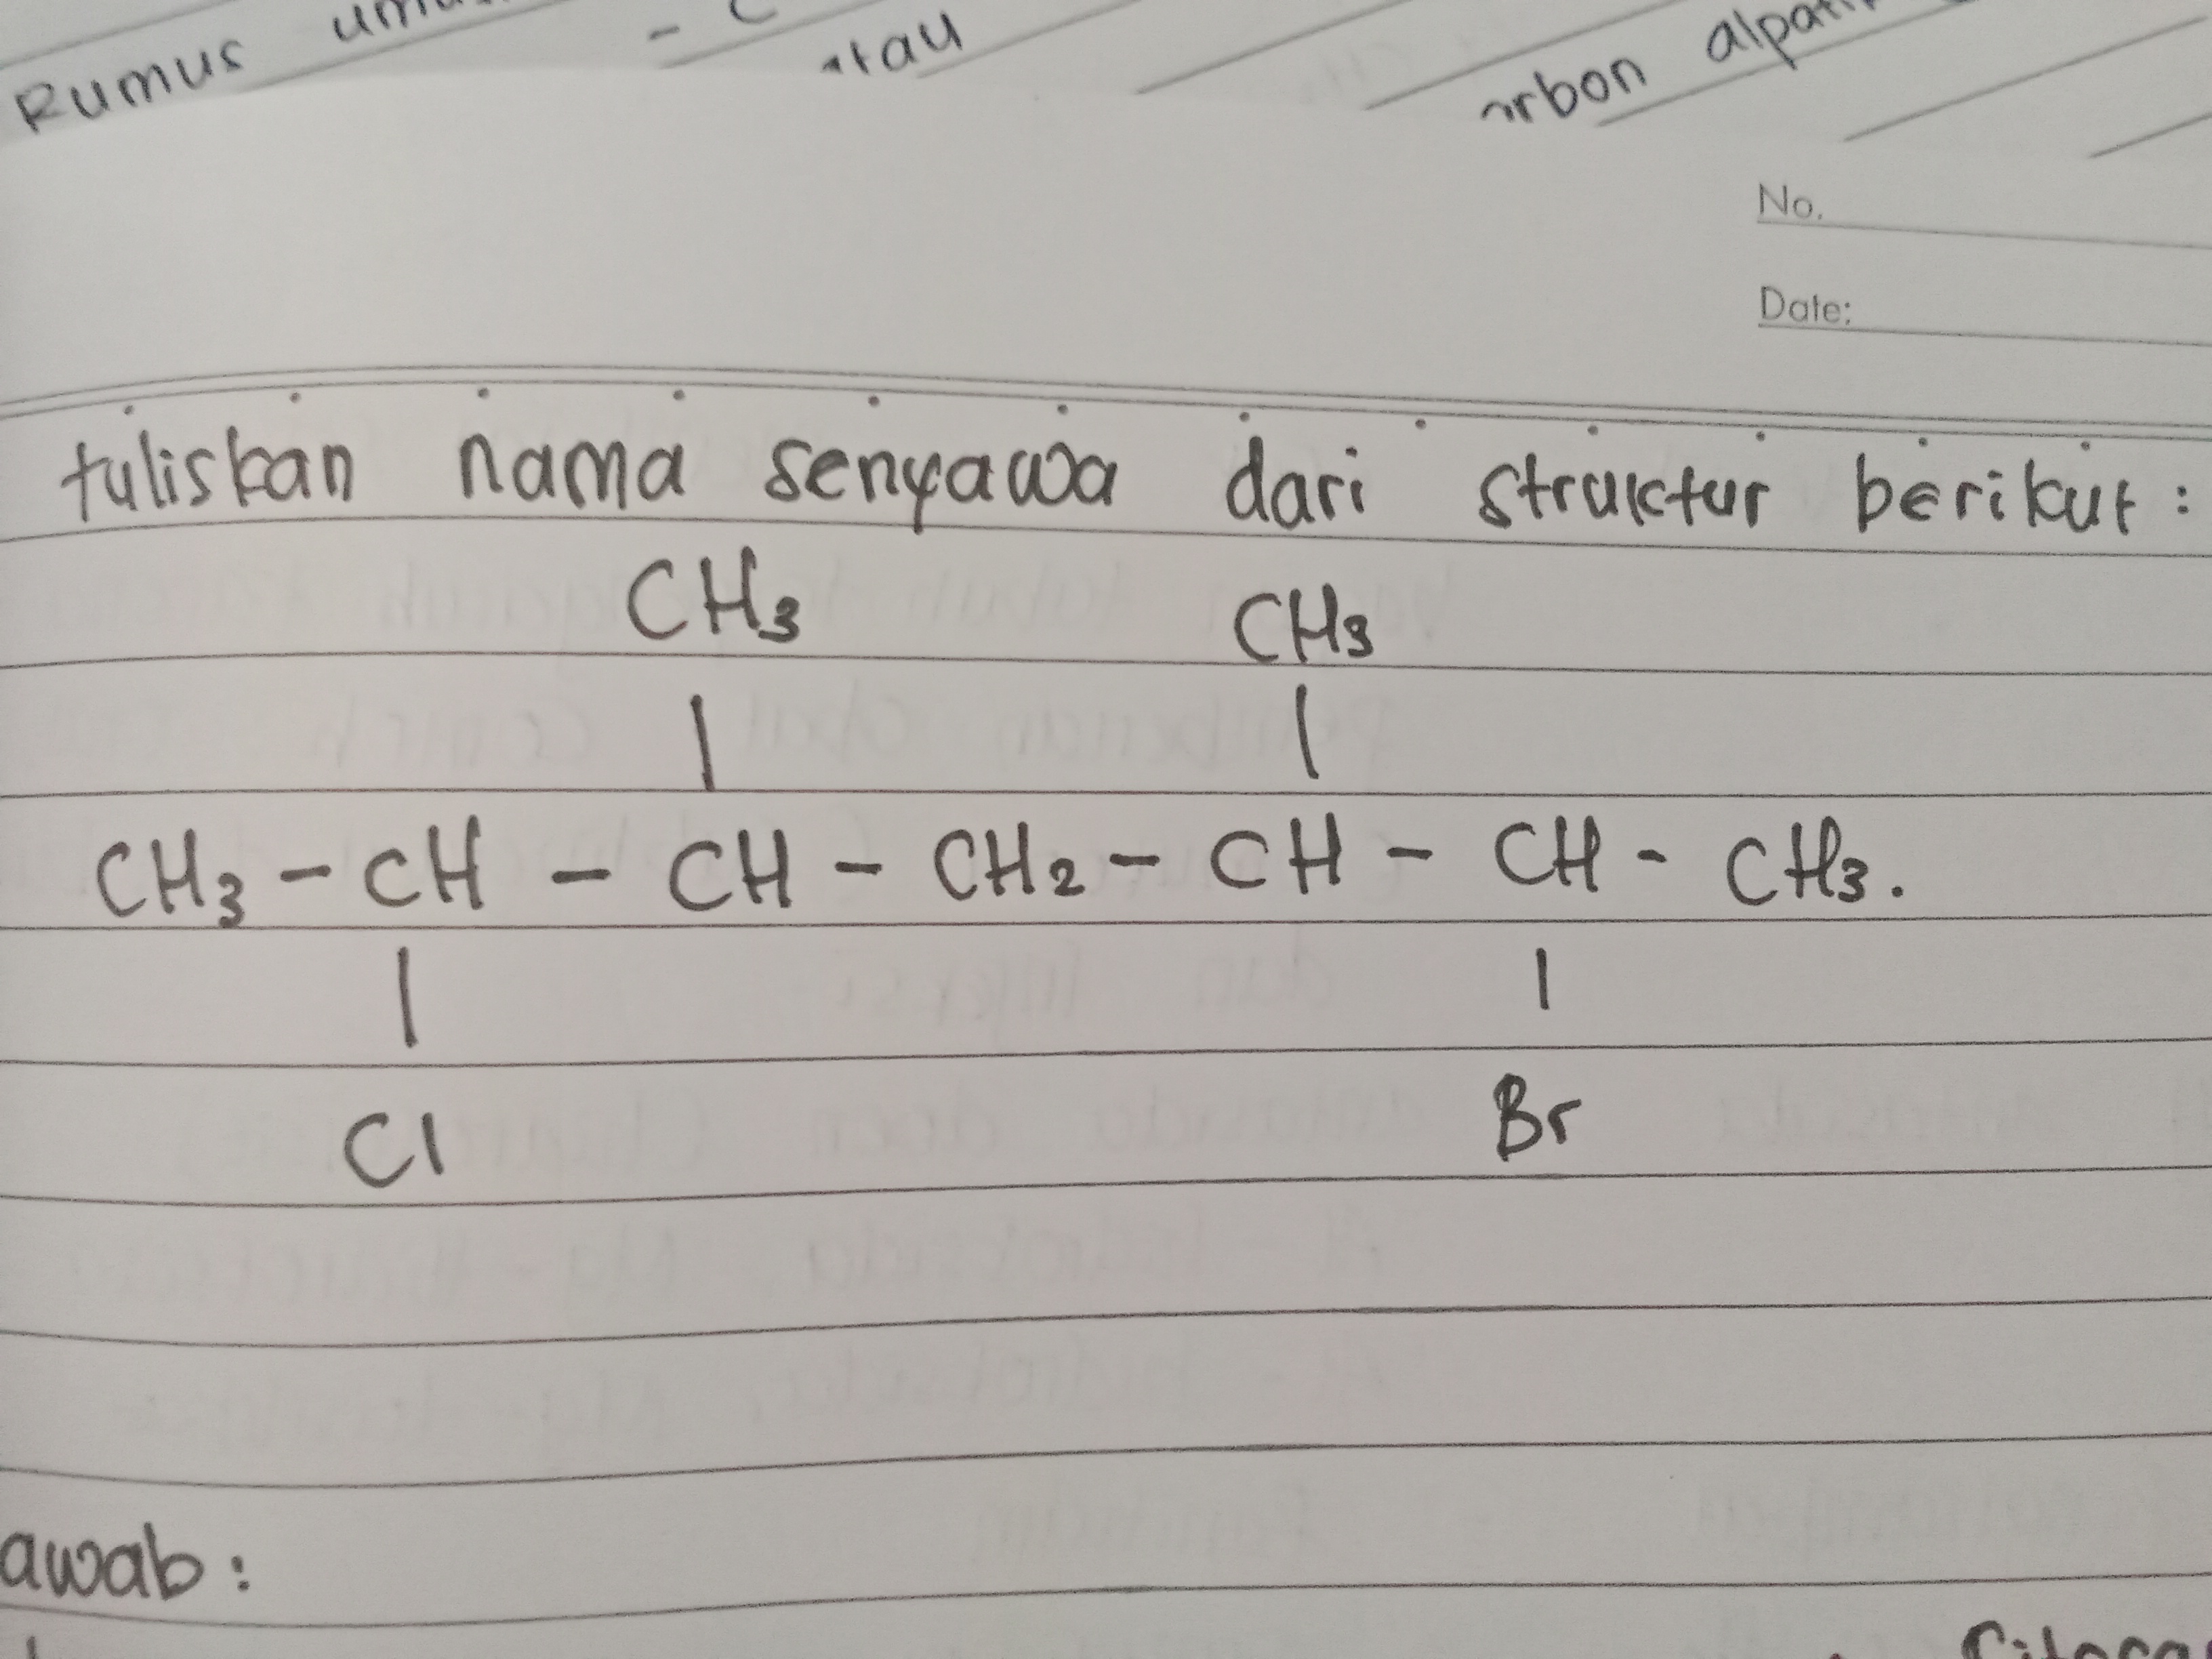 Rumus
atau
alpa
No.
Date:
tuliskan nama senyawa dari struktur berikut:
CH3 CH3
| |
CH3 - CH - CH - CH2 - CH - CH - CH3.
| |
Cl Br
awab: